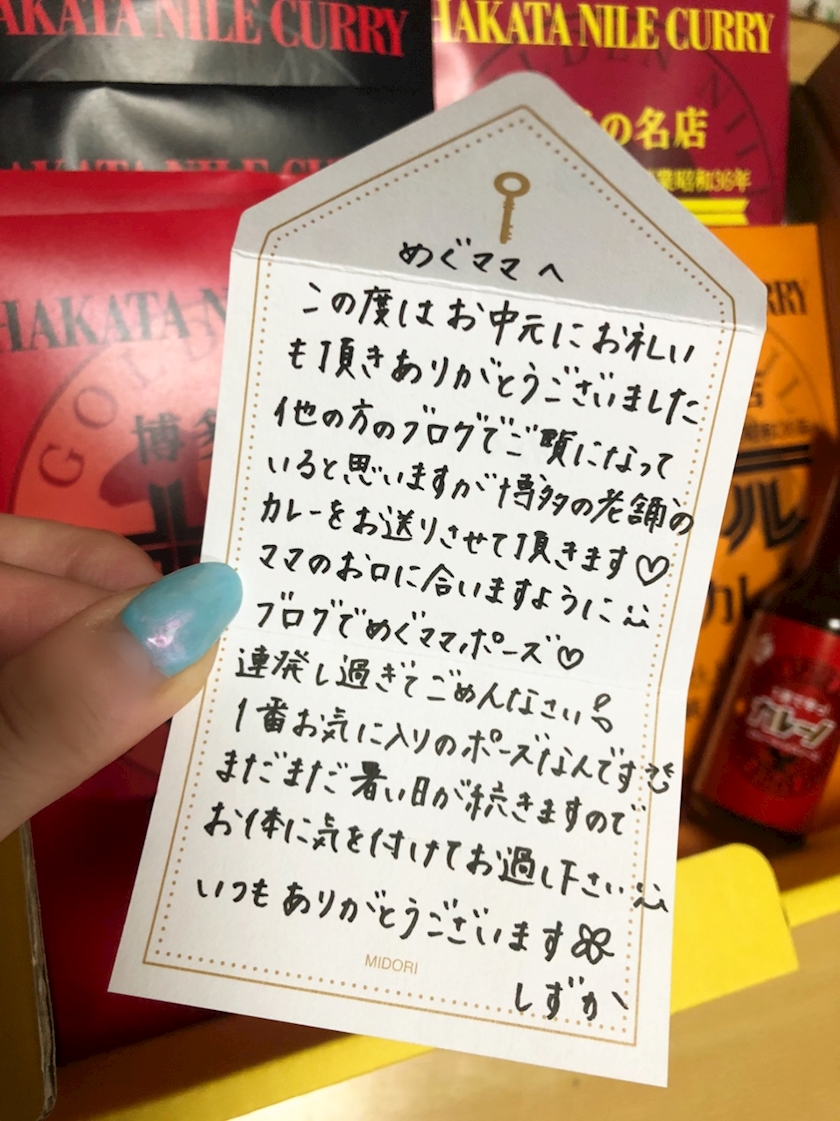 HAKATA NILE CURRY
HAKATA NILE CURRY
の名店
業昭和36年
めぐママへ
この度はお中元にお礼い
も頂きありがとうございました
他の方のブログでご覧になって
いると思いますが博多の老舗の
カレーをお送りさせて頂きます♡
ママのお口に合いますように
ブログでめぐママポーズ♡
連発し過ぎてごめんなさい
1番お気に入りのポーズなんです
まだまだ暑い日が続きますので
お体に気を付けてお過し下さい
いつもありがとうございます
しずか
MIDORI
HAKATA N
GOLD
博多
RRY
ル
カレ
カレー